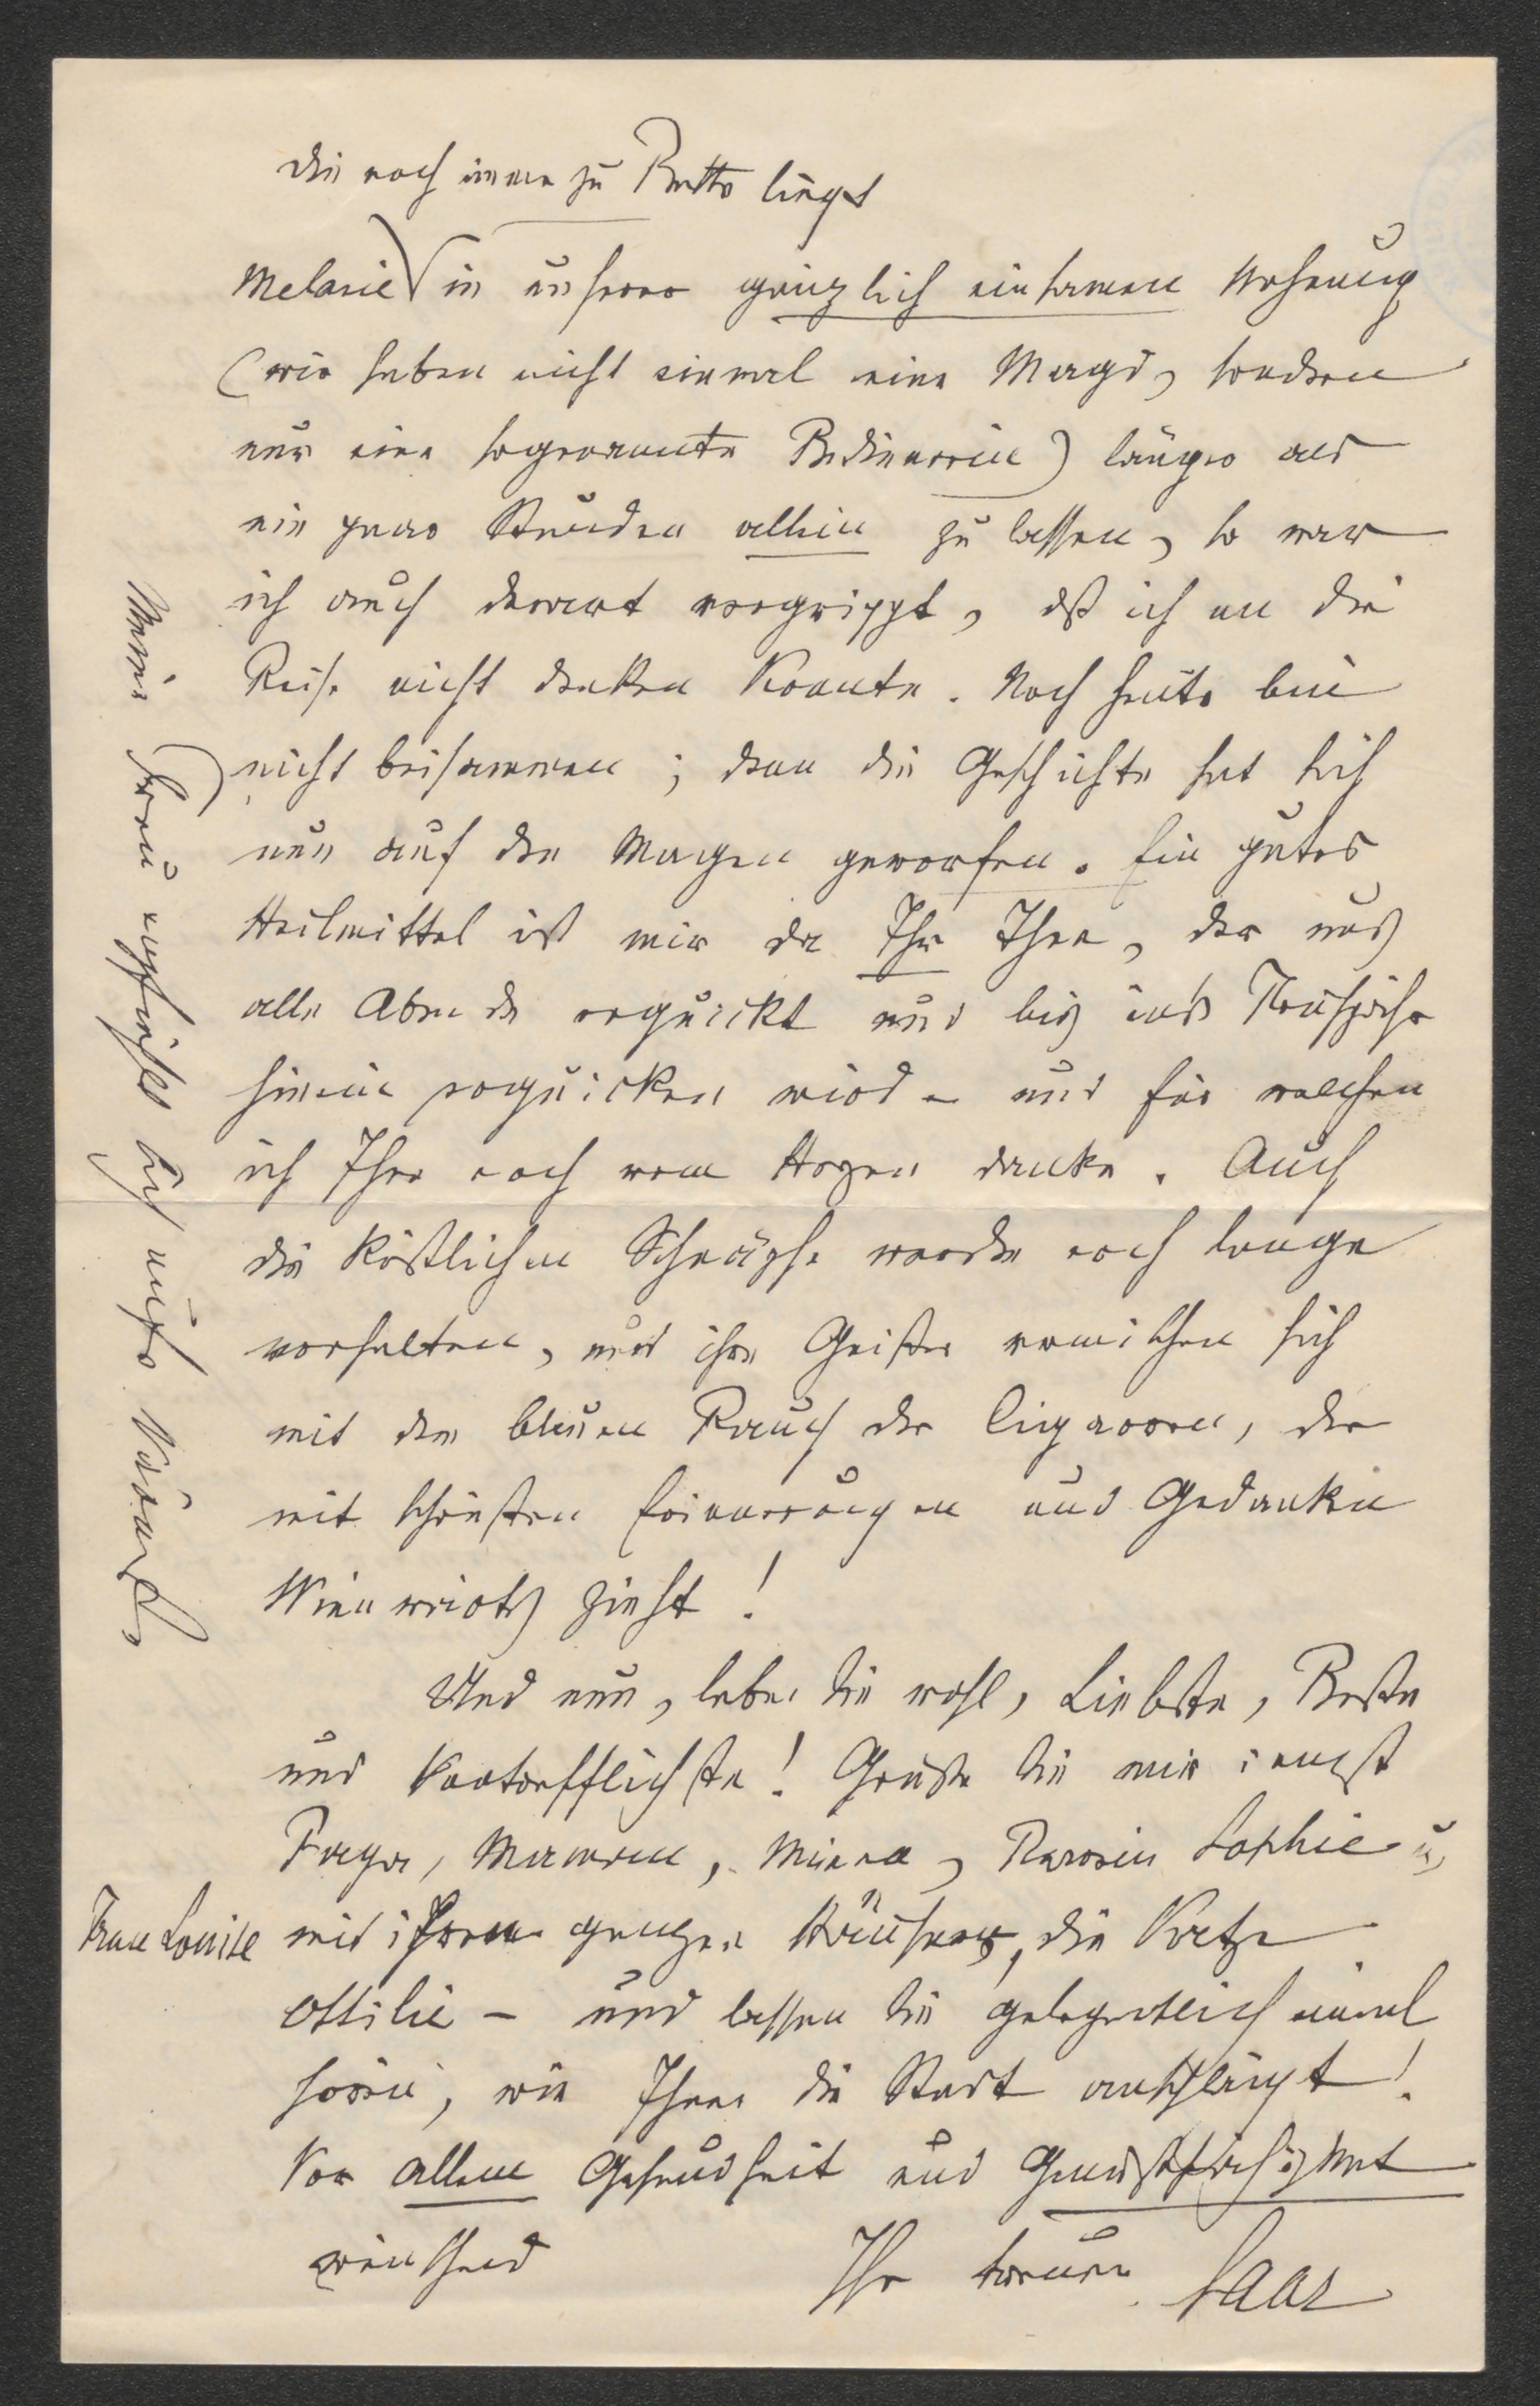 die noch immer zu Bette liegt
Melanie in unserer gänzlich einsamen Wohnung
(wir haben nicht einmal eine Magd, sondern
nur eine sogenannte Bedienerin) länger als
ein paar Stunden allein zu lassen, so war
ich auch derart vergrippt, daß ich an die
Reise nicht denken konnte. Noch heute bin
nicht beisammen; denn die Geschichte hat sich
nun auf den Magen geworfen. Ein gutes
Heilmittel ist mir da Ihr Thee, der uns
alle Abende erquickt und bis in's Frühjahr
hinein erquicken wird – und für welchen
ich Ihnen noch vom Herzen danke. Auch
die köstlichen Schnäpse werden noch lange
vorhalten, und ihre Geister vermischen sich
mit dem blauen Rauch der Cigarren, der
mit schönsten Erinnerungen und Gedanken
Wienwärts zieht!
Und nun, leben Sie wohl, Liebste, Beste
und Vortrefflichste! Grüßen Sie mir innigst
Papa, Maman, Minna, Baronin Sophie u,
Frau Louise mit ihrem ganzen Hause, die Katze
Ottilie – und lassen Sie gelegentlich einmal
hören, wie Ihnen die Stadt anschlägt!
Vor allem Gesundheit und
wünschend Ihr treuer Saar
Meine Frau empfiehlt sich aufs